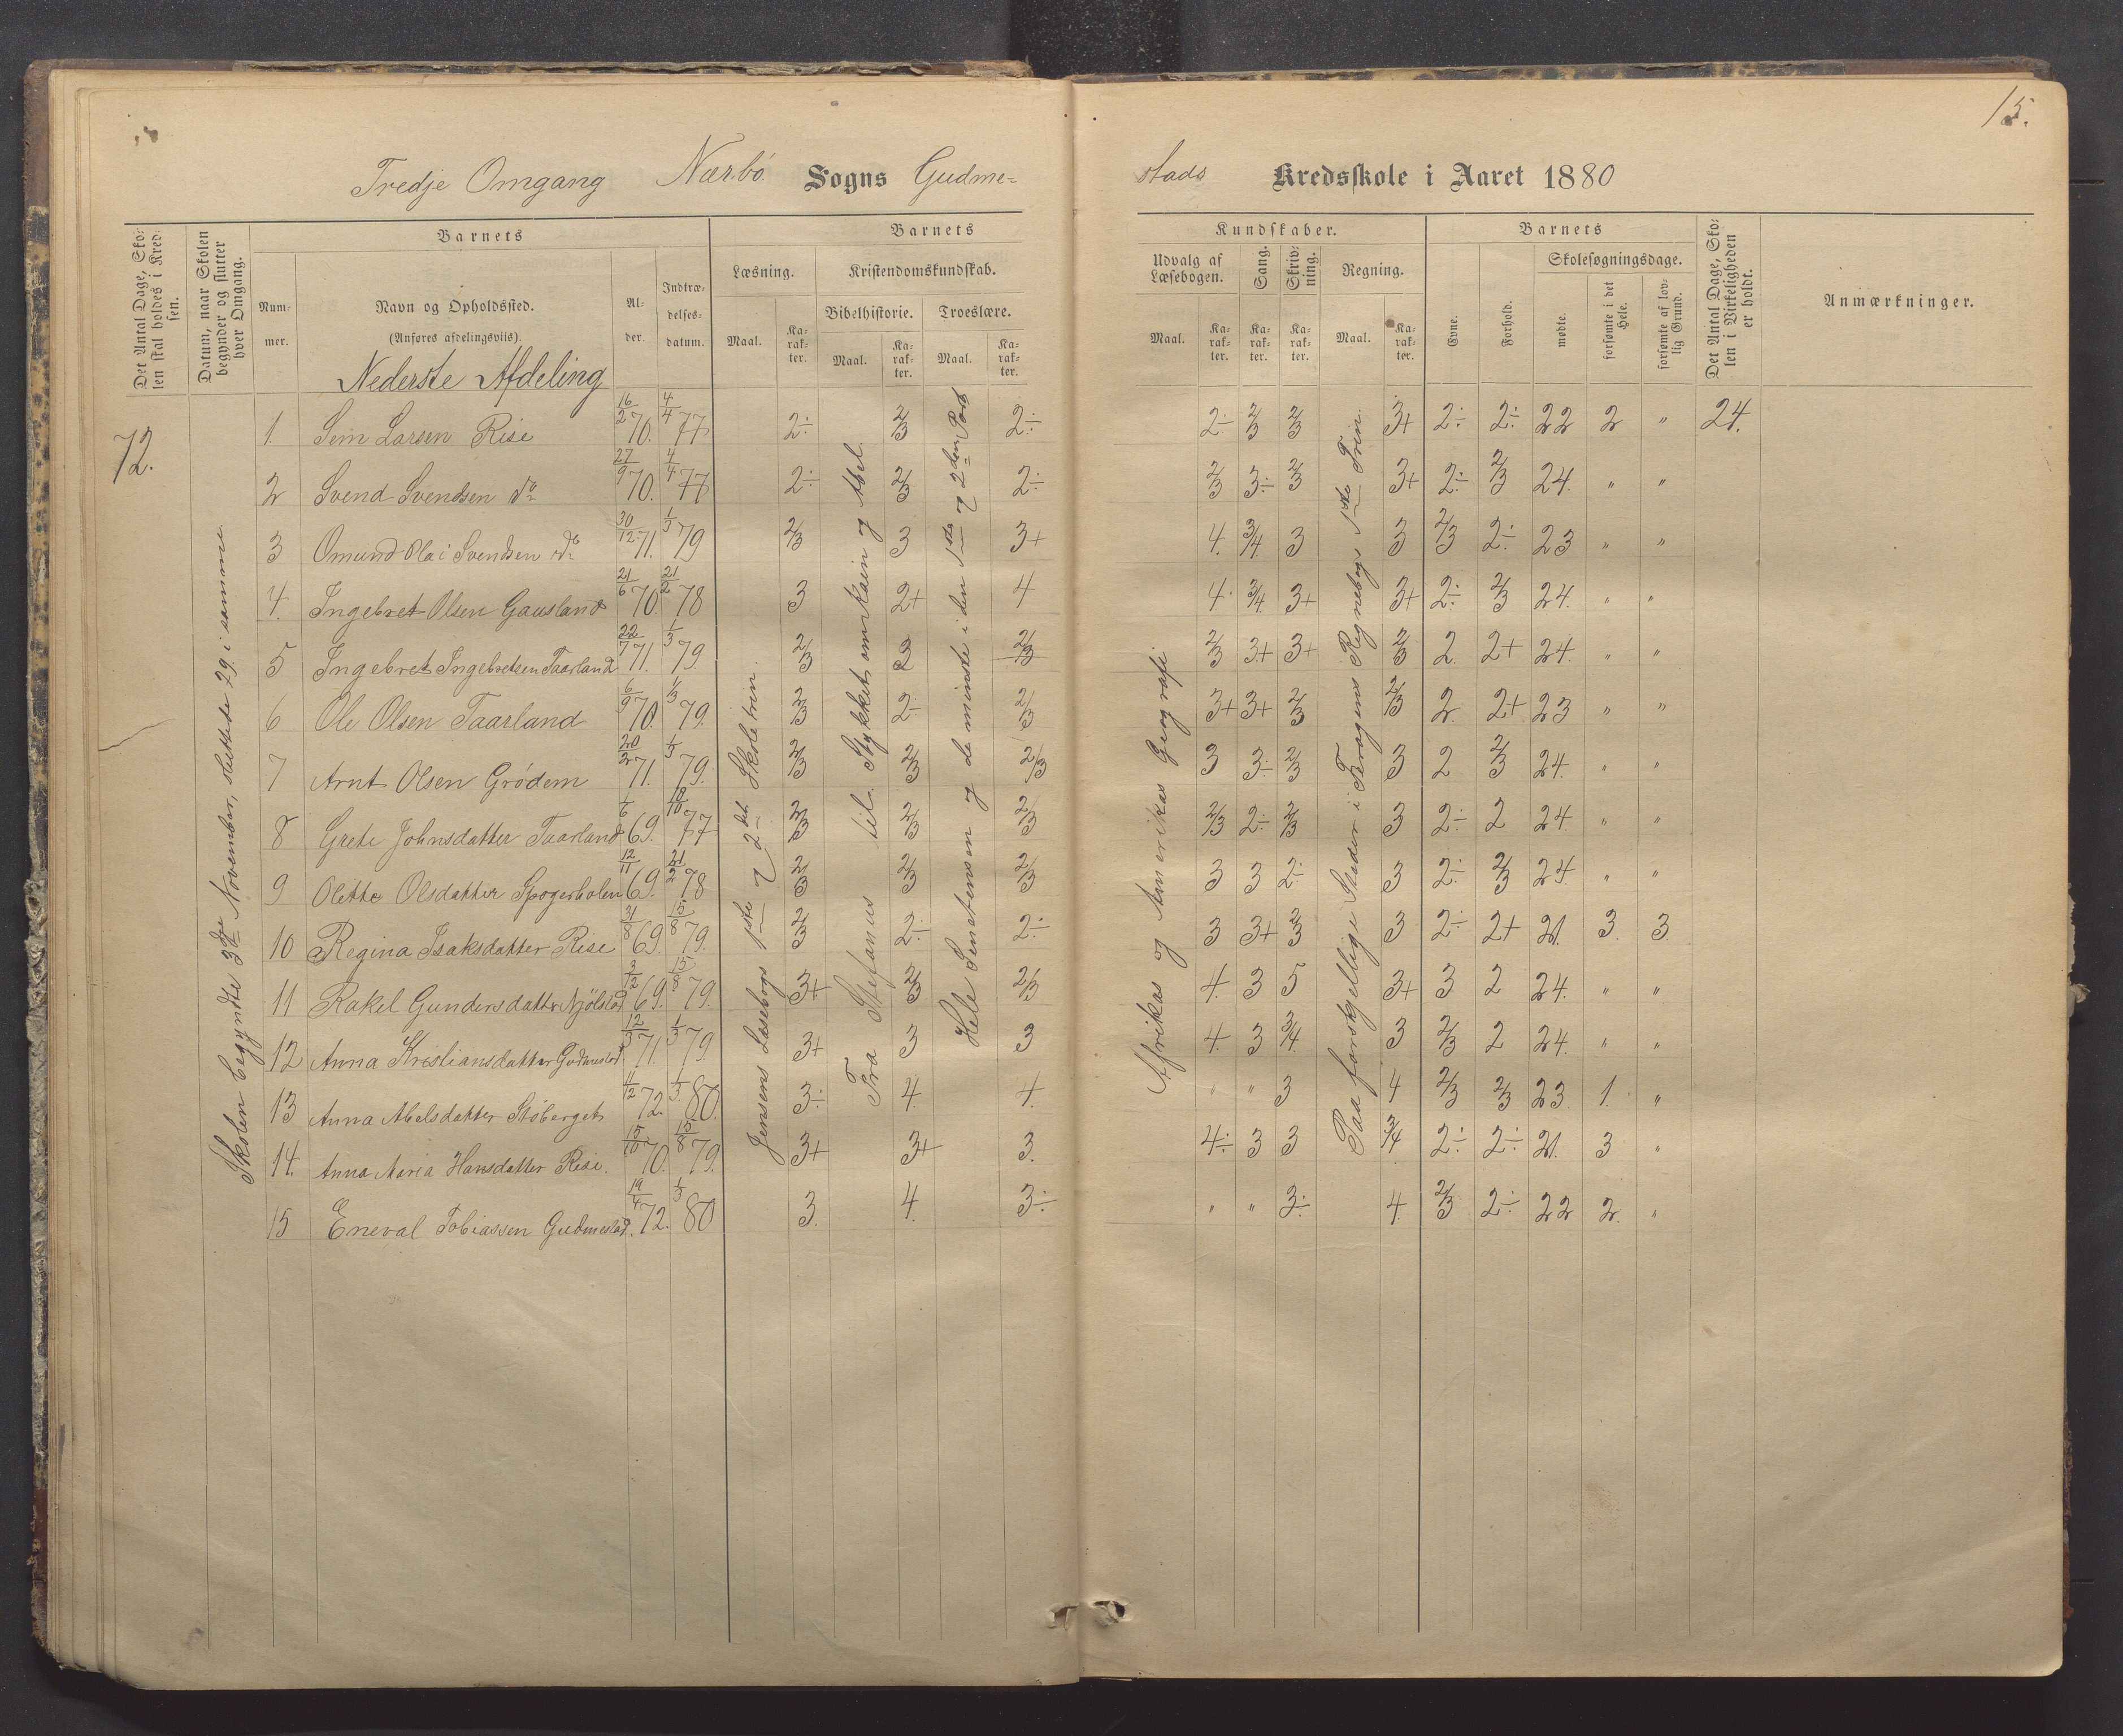 15.
Tredje Omgang Nærbö Sogns Gudme-
stads Kredsskole i Aaret 1880
Det Antal Dage, Skolen skal holdes i Kredsen.
Datum, naar Skolen begynder og slutter hver Omgang.
Barnets
Nummer.
Navn og Opholdssted.
(Anføres afdelingsviis).
Alder.
Indtrædelsesdatum.
Barnets
Læsning.
Maal.
Karakter.
Kristendomskundskab.
Bibelhistorie.
Maal.
Karakter.
Troeslære.
Maal.
Karakter.
Kundskaber.
Udvalg af Læsebogen.
Maal.
Karakter.
Sang.
Karakter.
Skrivning.
Karakter.
Regning.
Maal.
Karakter.
Barnets
Evne.
Forhold.
Skolesøgningsdage.
mødte.
forsømte i det Hele.
forsømte af lovlig Grund.
Det Antal Dage, Skolen i Virkeligheden er holdt.
Anmærkninger.
Nederste Afdeling
72.
Skolen begyndte 3die November, sluttede 29. i samme
Jensens Læsebogs 1ste og 2det Skoletrin.
Fra Stefanus til Stykket om Kain og Abel
Hele Sentensen og de mindste i den 1ste og 2den Part
Afrikas og Amerikas Geografi
Paa forskjellige Steder i Fragens Regnebogs 1ste Trin.
1. Sem Larsen Rise 16/2 70. 4/4 77 2÷ 2/3 2÷ 2÷ 2/3 2/3 3+ 2÷ 2÷ 22 2 " 24.
2 Svend Svendsen do 27/9 70. 4/4 77 2÷ 2/3 2÷ 2/3 3÷ 2/3 3+ 2÷ 2/3 24. " "
3 Omund Olai Svendsen do 30/12 71. 1/3 79 2/3 3 3+ 4. 3/4 3 3 2/3 2÷ 23 " "
4. Ingebret Olsen Gausland 21/6 70 21/2 78 3 2+ 4 4. 3/4. 3+ 3+ 2÷ 2/3 24. " "
5 Ingebret Ingebretsen Taarland 22/7 71. 1/3 79. 2/3 2 2/3 2/3 3+ 3+ 2/3 2. 2+ 24. " "
6 Ole Olsen Taarland 6/9 70. 1/3 79. 2/3 2÷ 2/3 3+ 3+ 2/3 2/3 2. 2+ 23 " "
7 Arnt Olsen Grödem 20/2 71. 1/3 79. 2/3 2/3 2/3 3 3÷ 2/3 3 2 2/3 24. " "
8 Grete Johnsdatter Taarland 1/6 69. 10/10 77 2/3 2/3 2/3 2/3 2÷ 2/3 3 2÷ 2 24. " "
9 Olette Olsdatter Skogerholen 12/11 69. 21/2 78 2/3 2/3 2/3 3 3 2÷ 3 2÷ 2/3 24. " "
10 Regina Isaksdatter Rise 31/8 69. 15/8 79. 2/3 2÷ 2÷ 3 3+ 2/3 3 2÷ 2+ 21. 3. 3.
11 Rakel Gundersdatter Njölstad 3/12 69. 15/8 79. 3+ 2/3 2/3 4. 3 5 3+ 3 2 24. " "
12 Anna Kristiansdatter Gudmestad. 12/3 71. 1/3 79. 3+ 3 3 4. 3 3/4. 3 2/3 2 24. " "
13 Anna Abelsdatter Stöberget 1/12 72. 1/3 80. 3÷ 4. 4. " " 3 4 2/3 2/3 23 1. "
14. Anna Maria Hansdatter Rise. 15/10 70. 15/8 79. 3+ 3+ 3. 4÷ 3 3 3/4 2÷ 2÷ 21. 3 "
15 Eneval Tobiassen Gudmestad. 19/4 72. 1/3 80 3. 4. 3÷ " " 3÷ 4. 2/3 2÷ 22 2. "